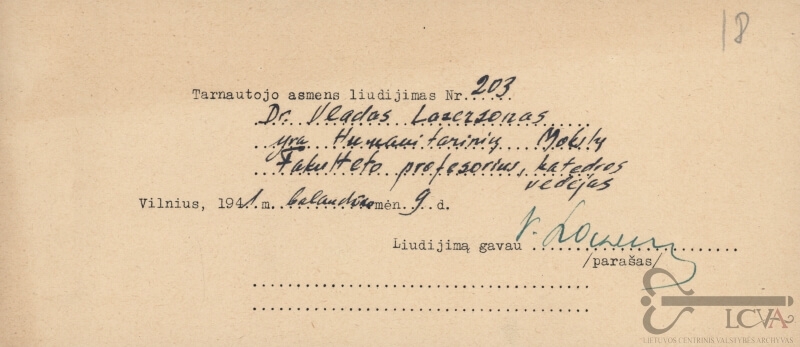 18
Tarnautojo asmens liudijimas Nr. 203
Dr. Vladas Lazersonas
yra Humanitarinių Mokslų
Fakulteto profesorius, katedros
vedėjas
Vilnius, 1941 m. balandžio mėn 9 d.
Liudijimą gavau V. Lazerson
/parašas/
LCVA
LIETUVOS CENTRINIS VALSTYBĖS ARCHYVAS